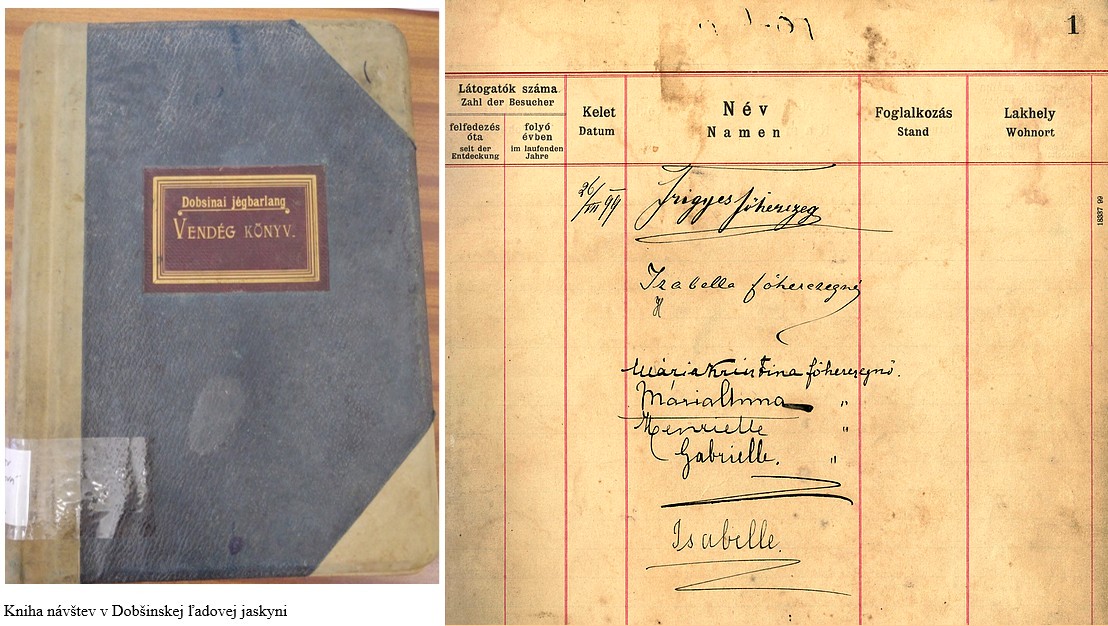 Dobsinai jégbarlang
VENDÉG KÖNYV.
Kniha návštev v Dobšinskej ľadovej jaskyni
1
Látogatók száma
Zahl der Besucher
felfedezés
óta
seit der
Entdeckung
folyó
évben
im laufenden
Jahre
Kelet
Datum
Név
Namen
Foglalkozás
Stand
Lakhely
Wohnort
18337 99
26/VII 99
Frigyes főherczeg
Izabella főherczegnő
Mária Krisztina főherczegnő.
Mária Anna "
Henriette "
Gabrielle. "
Isabelle.